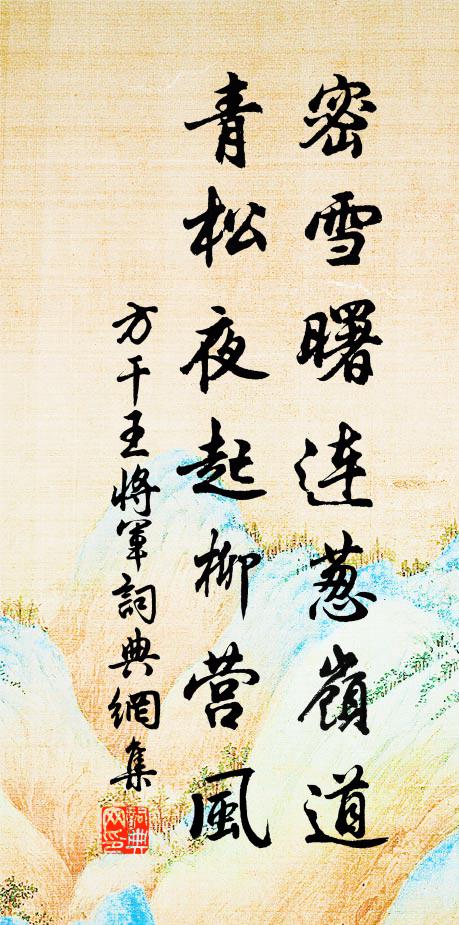 密雪曙连葱嶺道
青松夜起柳营風
方干王将軍詞典網集
詞典網印